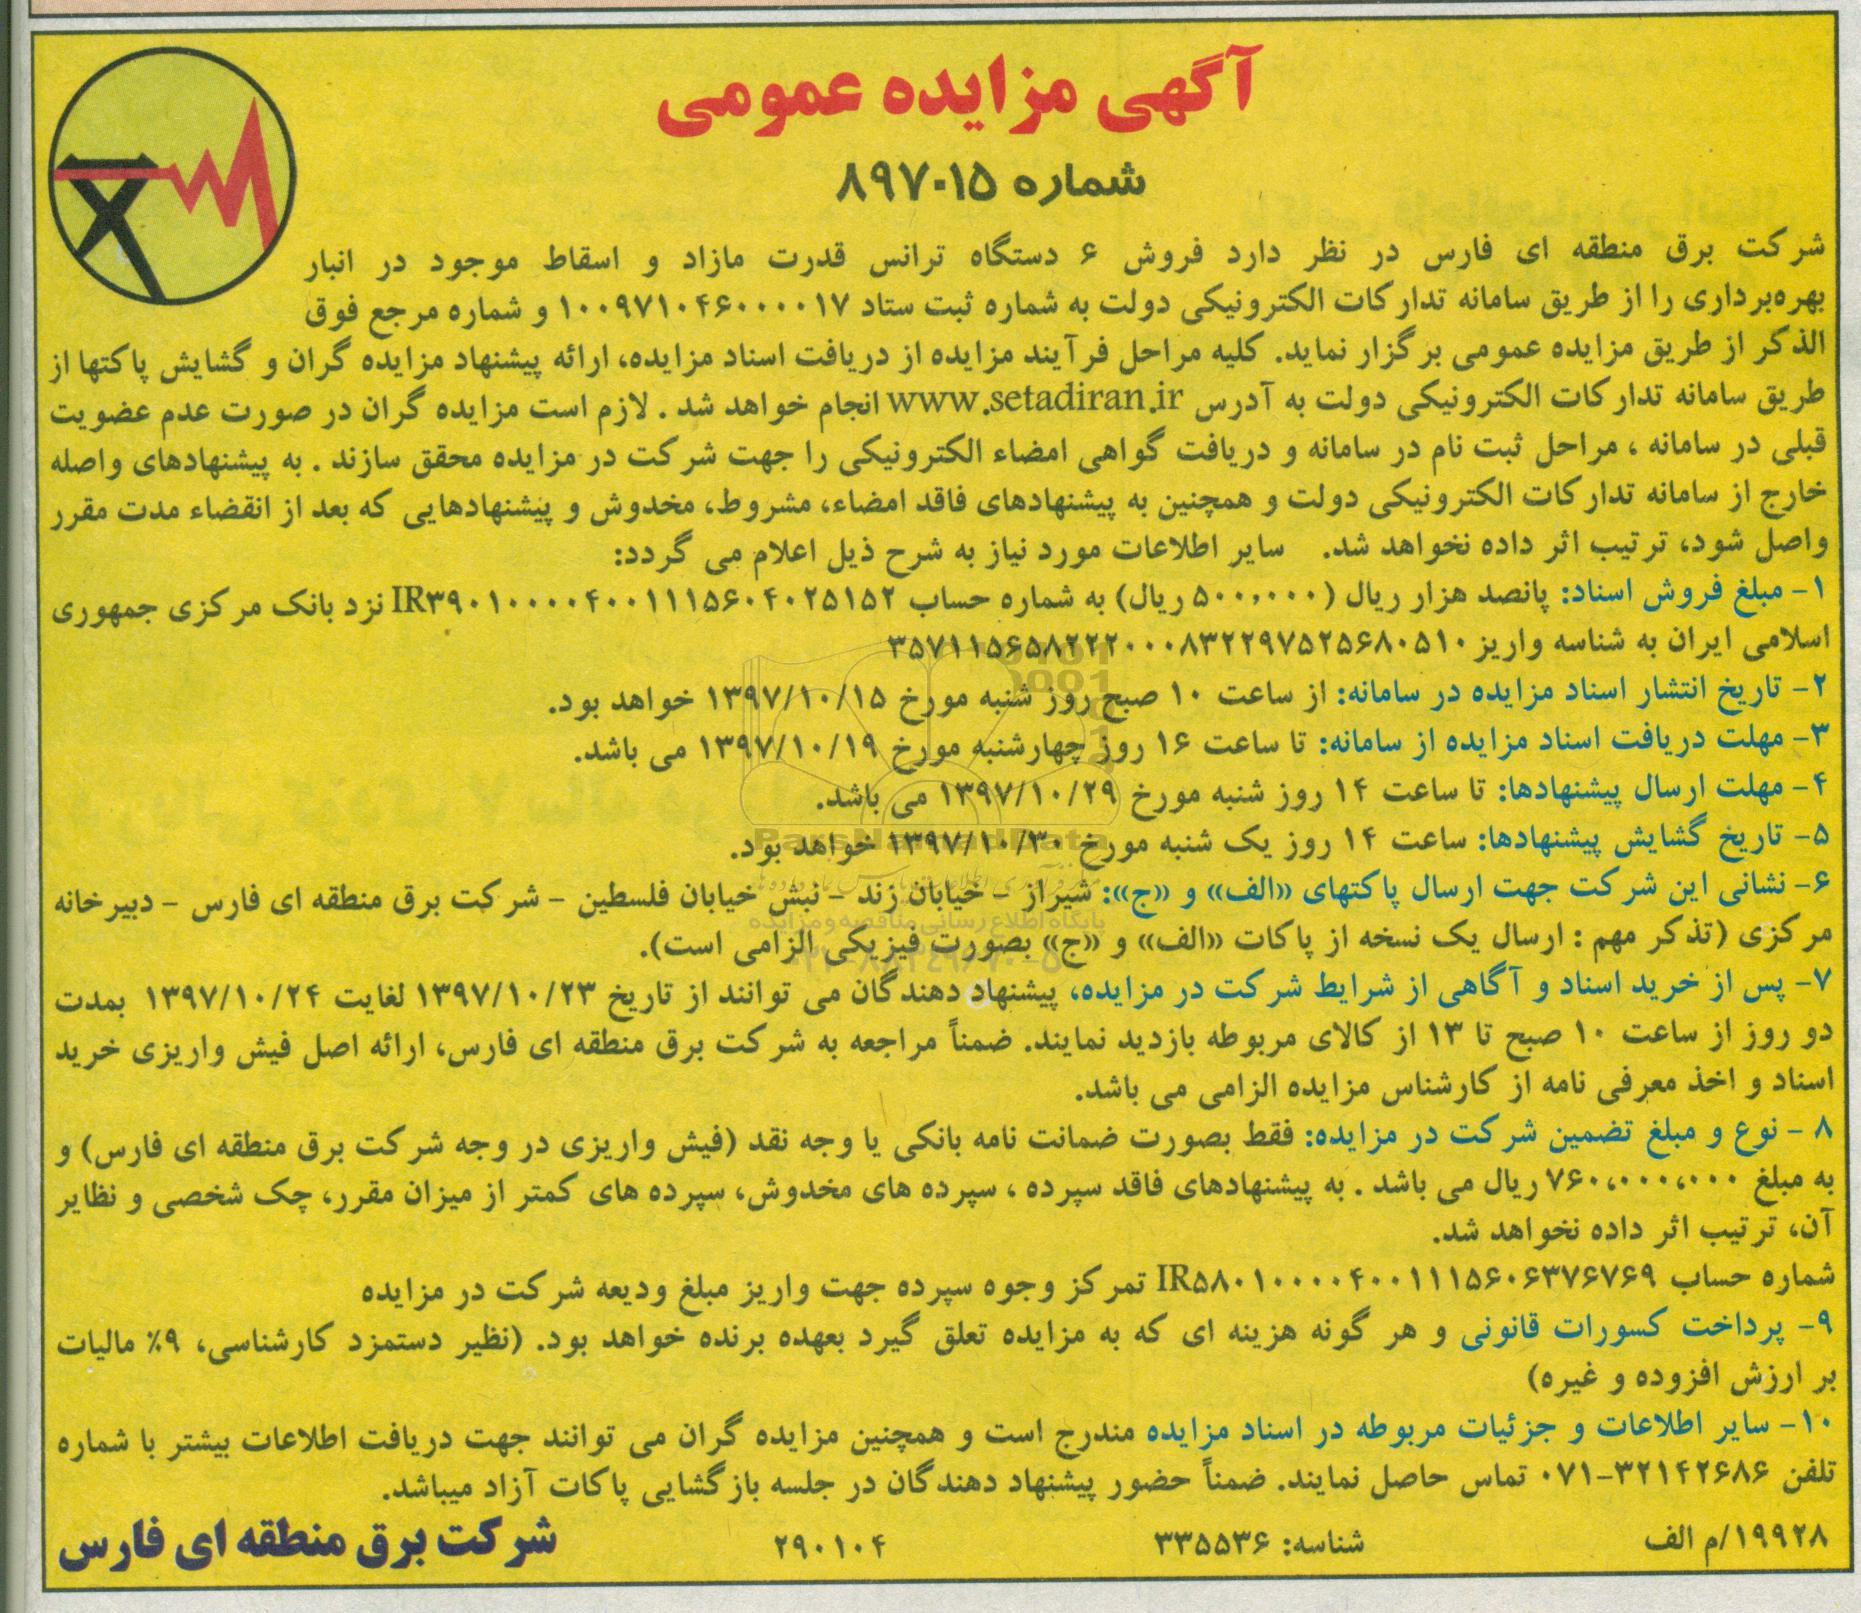 آگهی مزایده عمومی
شماره ۸۹۷۰۱۵
شرکت برق منطقه ای فارس در نظر دارد فروش ۶ دستگاه ترانس قدرت مازاد و اسقاط موجود در انبار
بهره‌برداری را از طریق سامانه تدارکات الکترونیکی دولت به شماره ثبت ستاد ۱۰۰۹۷۱۰۴۶۰۰۰۰۱۷ و شماره مرجع فوق
الذکر از طریق مزایده عمومی برگزار نماید. کلیه مراحل فرآیند مزایده از دریافت اسناد مزایده، ارائه پیشنهاد مزایده گران و گشایش پاکتها از
طریق سامانه تدارکات الکترونیکی دولت به آدرس www.setadiran.ir انجام خواهد شد . لازم است مزایده گران در صورت عدم عضویت
قبلی در سامانه ، مراحل ثبت نام در سامانه و دریافت گواهی امضاء الکترونیکی را جهت شرکت در مزایده محقق سازند . به پیشنهادهای واصله
خارج از سامانه تدارکات الکترونیکی دولت و همچنین به پیشنهادهای فاقد امضاء، مشروط، مخدوش و پیشنهادهایی که بعد از انقضاء مدت مقرر
واصل شود، ترتیب اثر داده نخواهد شد. سایر اطلاعات مورد نیاز به شرح ذیل اعلام می گردد:
۱- مبلغ فروش اسناد: پانصد هزار ریال (۵۰۰,۰۰۰ ریال) به شماره حساب IR۳۹۰۱۰۰۰۰۴۰۰۱۱۱۵۶۰۴۰۲۵۱۵۲ نزد بانک مرکزی جمهوری
اسلامی ایران به شناسه واریز ۳۵۷۱۱۵۶۵۸۲۲۲۰۰۰۸۳۲۲۹۷۵۲۵۶۸۰۵۱۰
۲- تاریخ انتشار اسناد مزایده در سامانه: از ساعت ۱۰ صبح روز شنبه مورخ ۱۳۹۷/۱۰/۱۵ خواهد بود.
۳- مهلت دریافت اسناد مزایده از سامانه: تا ساعت ۱۶ روز چهارشنبه مورخ ۱۳۹۷/۱۰/۱۹ می باشد.
۴- مهلت ارسال پیشنهادها: تا ساعت ۱۴ روز شنبه مورخ ۱۳۹۷/۱۰/۲۹ می باشد.
ParsNamadData
۵- تاریخ گشایش پیشنهادها: ساعت ۱۴ روز یک شنبه مورخ ۱۳۹۷/۱۰/۳۰ خواهد بود.
۶- نشانی این شرکت جهت ارسال پاکتهای «الف» و «ج»: شیراز - خیابان زند - نبش خیابان فلسطین - شرکت برق منطقه ای فارس - دبیرخانه
پایگاه اطلاع رسانی مناقصه و مزایده
مرکزی (تذکر مهم : ارسال یک نسخه از پاکات «الف» و «ج» بصورت فیزیکی الزامی است).
۷- پس از خرید اسناد و آگاهی از شرایط شرکت در مزایده، پیشنهاد دهندگان می توانند از تاریخ ۱۳۹۷/۱۰/۲۳ لغایت ۱۳۹۷/۱۰/۲۴ بمدت
دو روز از ساعت ۱۰ صبح تا ۱۳ از کالای مربوطه بازدید نمایند. ضمناً مراجعه به شرکت برق منطقه ای فارس، ارائه اصل فیش واریزی خرید
اسناد و اخذ معرفی نامه از کارشناس مزایده الزامی می باشد.
۸ - نوع و مبلغ تضمین شرکت در مزایده: فقط بصورت ضمانت نامه بانکی یا وجه نقد (فیش واریزی در وجه شرکت برق منطقه ای فارس) و
به مبلغ ۷۶۰,۰۰۰,۰۰۰ ریال می باشد . به پیشنهادهای فاقد سپرده ، سپرده های مخدوش، سپرده های کمتر از میزان مقرر، چک شخصی و نظایر
آن، ترتیب اثر داده نخواهد شد.
شماره حساب IR۵۸۰۱۰۰۰۰۴۰۰۱۱۱۵۶۰۶۳۷۶۷۶۹ تمرکز وجوه سپرده جهت واریز مبلغ ودیعه شرکت در مزایده
۹- پرداخت کسورات قانونی و هر گونه هزینه ای که به مزایده تعلق گیرد بعهده برنده خواهد بود. (نظیر دستمزد کارشناسی، ۹٪ مالیات
بر ارزش افزوده و غیره)
۱۰- سایر اطلاعات و جزئیات مربوطه در اسناد مزایده مندرج است و همچنین مزایده گران می توانند جهت دریافت اطلاعات بیشتر با شماره
تلفن ۳۲۱۴۲۶۸۶-۰۷۱ تماس حاصل نمایند. ضمناً حضور پیشنهاد دهندگان در جلسه بازگشایی پاکات آزاد میباشد.
۱۹۹۲۸/م الف شناسه: ۳۳۵۵۳۶ ۲۹۰۱۰۴ شرکت برق منطقه ای فارس